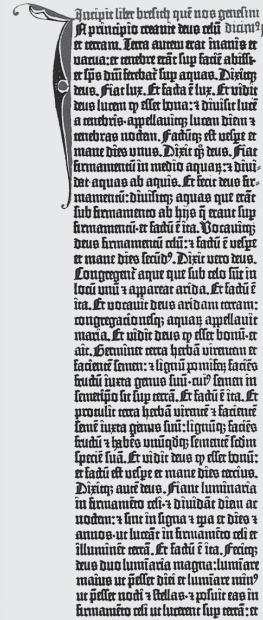 Incipit liber bresith quē nos genesim
In principio creavit deus celū dicim⁹
et terram. Terra autem erat inanis et
vacua: et tenebre erāt sup faciē abissi:
et sp̄us dn̄i ferebat̄ sup aquas. Dixitq̄;
deus. Fiat lux. Et facta ē lux. Et vidit
deus lucem q̄ esset bona: ⁊ divisit lucē
a tenebris·appellavitq̄; lucem diem ⁊
tenebras noctem. Factūq̄; est vespe et
mane dies unus. Dixit q̄; deus. Fiat
firmamentū in medio aquar̄ꝝ: ⁊ divi-
dat aquas ab aquis. Et fecit deus fir-
mamentū: divisitq̄; aquas que erāt
sub firmamento ab hijs q̄ erant sup
firmamentū·et factū ē ita. Vocavitq̄;
deus firmamentū celū: ⁊ factū ē vespe
et mane dies secūd⁹. Dixit vero deus.
Congregent̄ aque que sub celo sūt in
locū unū ⁊ appareat arida. Et factū ē
ita. Et vocavit deus aridam terram:
congregacionesq̄; aquaꝝ appellavit
maria. Et vidit deus q̄ esset bonū·et
ait. Germinet terra herbā virentem et
facientē semen: ⁊ lignū pomiferū faciēs
fructū iuxta genus suū·cui⁹ semen in
semetipso sit sup terrā. Et factū ē ita. Et
protulit terra herbā virentē ⁊ facientē
semē iuxta genus suū: lignūq̄; faciēs
fructū ⁊ habēs unūqdq̄; sementē scdm̄
speciē suā. Et vidit deus q̄ esset bonū:
et factū est vespe et mane dies tercius.
Dixitq̄; autē deus. Fiant luminaria
in firmamēto celi·⁊ dividāt diem ac
noctem: ⁊ sint in signa ⁊ tp̄a et dies ⁊
annos·ut luceāt in firmamēto celi et
illuminēt terrā. Et factū ē ita. Fecitq̄;
deus duo lumīaria magna: lumīare
maius ut p̄esset diei et lumīare min⁹
ut p̄esset nocti ⁊ stellas·⁊ posuit eas in
firmamēto celi ut lucerent sup terrā: et